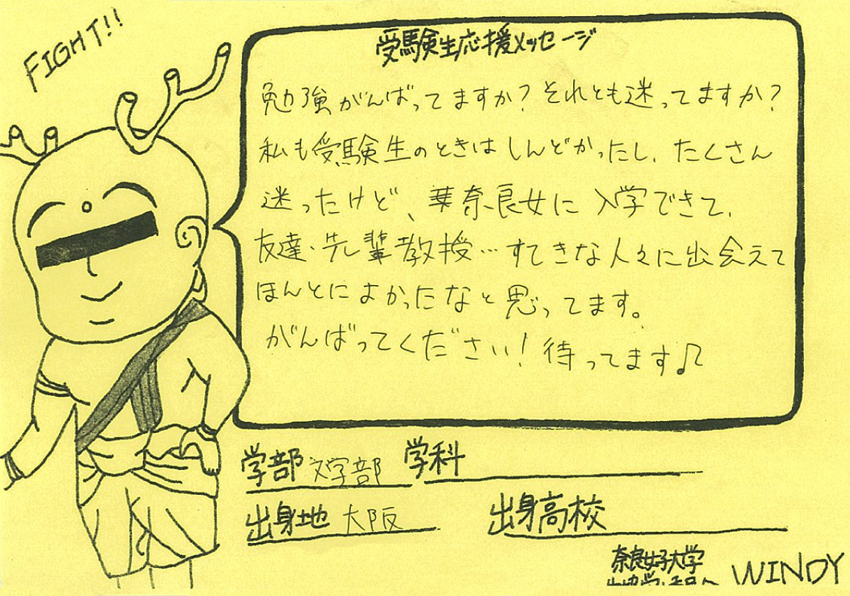 FIGHT!!
受験生応援メッセージ
勉強がんばってますか？それとも迷ってますか？
私も受験生のときはしんどかったし、たくさん
迷ったけど、奈良女に入学できて、
友達・先輩教授…すてきな人々に出会えて
ほんとによかったなと思ってます。
がんばってください！待ってます♫
学部 文学部 学科
出身地 大阪 出身高校
奈良女子大学
WINDY